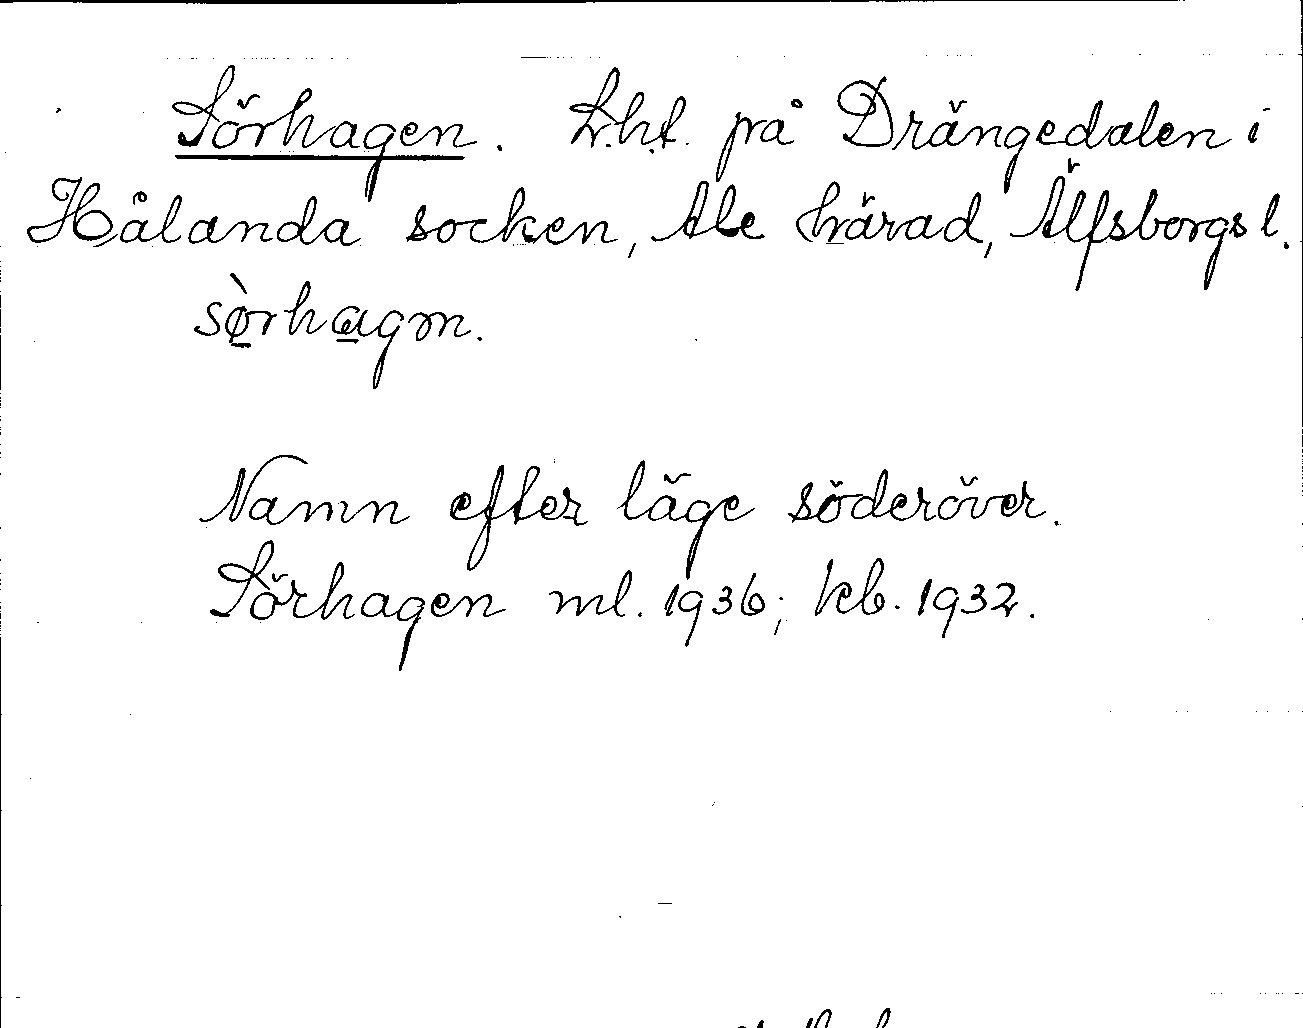 Sörhagen. L.h.t. på Drängedalen i
Hålanda socken, Ale härad, Älfsborgs l.
sø̀rhagm.
Namn efter läge söderöver.
Sörhagen ml. 1936; kb. 1932.